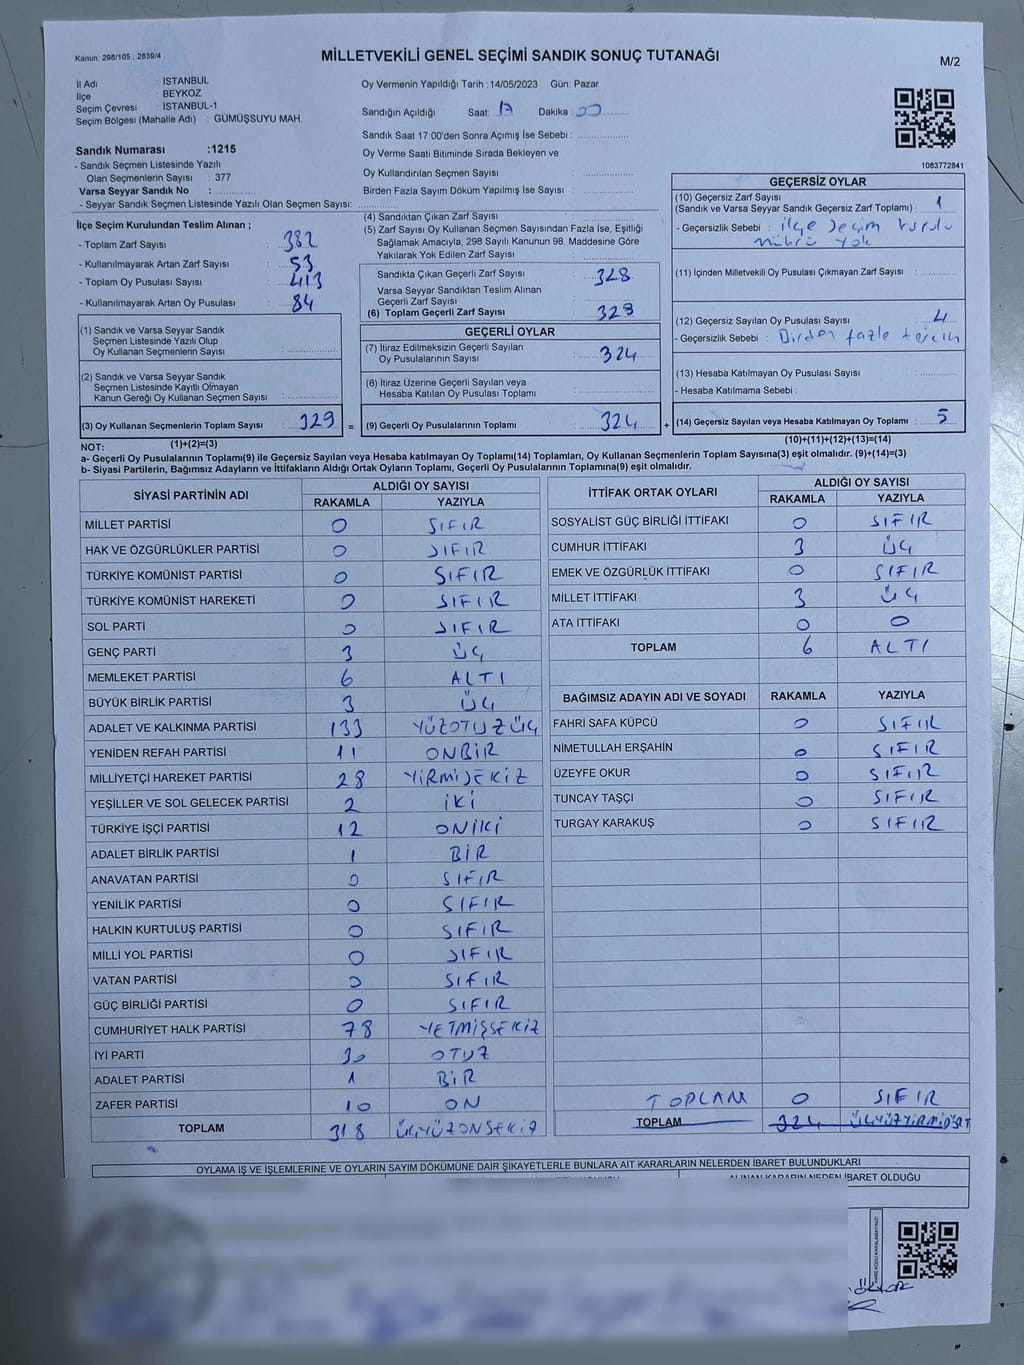 Kanun: 298/105 , 2839/4
MİLLETVEKİLİ GENEL SEÇİMİ SANDIK SONUÇ TUTANAĞI
M/2
İl Adı : İSTANBUL
İlçe : BEYKOZ
Seçim Çevresi : İSTANBUL-1
Seçim Bölgesi (Mahalle Adı) : GÜMÜŞSUYU MAH.
Sandık Numarası :1215
- Sandık Seçmen Listesinde Yazılı
Olan Seçmenlerin Sayısı : 377
Varsa Seyyar Sandık No :
- Seyyar Sandık Seçmen Listesinde Yazılı Olan Seçmen Sayısı:
Oy Vermenin Yapıldığı Tarih :14/05/2023 Gün: Pazar
Sandığın Açıldığı Saat: 17 Dakika: 00
Sandık Saat 17:00'den Sonra Açımış İse Sebebi :
Oy Verme Saati Bitiminde Sırada Bekleyen ve
Oy Kullandırılan Seçmen Sayısı :
Birden Fazla Sayım Döküm Yapılmış İse Sayısı :
1083772841
İlçe Seçim Kurulundan Teslim Alınan ;
- Toplam Zarf Sayısı : 382
- Kullanılmayarak Artan Zarf Sayısı : 53
- Toplam Oy Pusulası Sayısı : 413
- Kullanılmayarak Artan Oy Pusulası : 84
(1) Sandık ve Varsa Seyyar Sandık
Seçmen Listesinde Yazılı Olup
Oy Kullanan Seçmenlerin Sayısı :
(2) Sandık ve Varsa Seyyar Sandık
Seçmen Listesinde Kayıtlı Olmayan
Kanun Gereği Oy Kullanan Seçmen Sayısı :
(3) Oy Kullanan Seçmenlerin Toplam Sayısı : 329 =
(4) Sandıktan Çıkan Zarf Sayısı :
(5) Zarf Sayısı Oy Kullanan Seçmen Sayısından Fazla İse, Eşitliği
Sağlamak Amacıyla, 298 Sayılı Kanunun 98. Maddesine Göre
Yakılarak Yok Edilen Zarf Sayısı :
Sandıkta Çıkan Geçerli Zarf Sayısı : 328
Varsa Seyyar Sandıktan Teslim Alınan
Geçerli Zarf Sayısı :
(6) Toplam Geçerli Zarf Sayısı : 328
GEÇERLİ OYLAR
(7) İtiraz Edilmeksizin Geçerli Sayılan
Oy Pusulalarının Sayısı : 324
(8) İtiraz Üzerine Geçerli Sayılan veya
Hesaba Katılan Oy Pusulası Toplamı :
(9) Geçerli Oy Pusulalarının Toplamı : 324 +
GEÇERSİZ OYLAR
(10) Geçersiz Zarf Sayısı
(Sandık ve Varsa Seyyar Sandık Geçersiz Zarf Toplamı) : 1
- Geçersizlik Sebebi : ilçe seçim kurulu
mührü yok
(11) İçinden Milletvekili Oy Pusulası Çıkmayan Zarf Sayısı :
(12) Geçersiz Sayılan Oy Pusulası Sayısı : 4
- Geçersizlik Sebebi : Birden fazla tercih
(13) Hesaba Katılmayan Oy Pusulası Sayısı :
- Hesaba Katılmama Sebebi :
(14) Geçersiz Sayılan veya Hesaba Katılmayan Oy Toplamı : 5
NOT: (1)+(2)=(3) (10)+(11)+(12)+(13)=(14)
a- Geçerli Oy Pusulalarının Toplamı(9) ile Geçersiz Sayılan veya Hesaba katılmayan Oy Toplamı(14) Toplamları, Oy Kullanan Seçmenlerin Toplam Sayısına(3) eşit olmalıdır. (9)+(14)=(3)
b- Siyasi Partilerin, Bağımsız Adayların ve İttifakların Aldığı Ortak Oyların Toplamı, Geçerli Oy Pusulalarının Toplamına(9) eşit olmalıdır.
SİYASİ PARTİNİN ADI ALDIĞI OY SAYISI
RAKAMLA YAZIYLA
MİLLET PARTİSİ 0 SIFIR
HAK VE ÖZGÜRLÜKLER PARTİSİ 0 SIFIR
TÜRKİYE KOMÜNİST PARTİSİ 0 SIFIR
TÜRKİYE KOMÜNİST HAREKETİ 0 SIFIR
SOL PARTİ 0 SIFIR
GENÇ PARTİ 3 ÜÇ
MEMLEKET PARTİSİ 6 ALTI
BÜYÜK BİRLİK PARTİSİ 3 ÜÇ
ADALET VE KALKINMA PARTİSİ 133 YÜZOTUZÜÇ
YENİDEN REFAH PARTİSİ 11 ONBİR
MİLLİYETÇİ HAREKET PARTİSİ 28 YİRMİSEKİZ
YEŞİLLER VE SOL GELECEK PARTİSİ 2 İKİ
TÜRKİYE İŞÇİ PARTİSİ 12 ONİKİ
ADALET BİRLİK PARTİSİ 1 BİR
ANAVATAN PARTİSİ 0 SIFIR
YENİLİK PARTİSİ 0 SIFIR
HALKIN KURTULUŞ PARTİSİ 0 SIFIR
MİLLİ YOL PARTİSİ 0 SIFIR
VATAN PARTİSİ 0 SIFIR
GÜÇ BİRLİĞİ PARTİSİ 0 SIFIR
CUMHURİYET HALK PARTİSİ 78 YETMİŞSEKİZ
İYİ PARTİ 30 OTUZ
ADALET PARTİSİ 1 BİR
ZAFER PARTİSİ 10 ON
TOPLAM 318 ÜÇYÜZONSEKİZ
İTTİFAK ORTAK OYLARI ALDIĞI OY SAYISI
RAKAMLA YAZIYLA
SOSYALİST GÜÇ BİRLİĞİ İTTİFAKI 0 SIFIR
CUMHUR İTTİFAKI 3 ÜÇ
EMEK VE ÖZGÜRLÜK İTTİFAKI 0 SIFIR
MİLLET İTTİFAKI 3 ÜÇ
ATA İTTİFAKI 0 0
TOPLAM 6 ALTI
BAĞIMSIZ ADAYIN ADI VE SOYADI RAKAMLA YAZIYLA
FAHRİ SAFA KÜPCÜ 0 SIFIR
NİMETULLAH ERŞAHİN 0 SIFIR
ÜZEYFE OKUR 0 SIFIR
TUNCAY TAŞÇI 0 SIFIR
TURGAY KARAKUŞ 0 SIFIR
TOPLAM 0 SIFIR
TOPLAM 324 ÜÇYÜZYİRMİDÖRT
OYLAMA İŞ VE İŞLEMLERİNE VE OYLARIN SAYIM DÖKÜMÜNE DAİR ŞİKAYETLERLE BUNLARA AİT KARARLARIN NELERDEN İBARET BULUNDUKLARI
ALINAN KARARIN NEDEN İBARET OLDUĞU